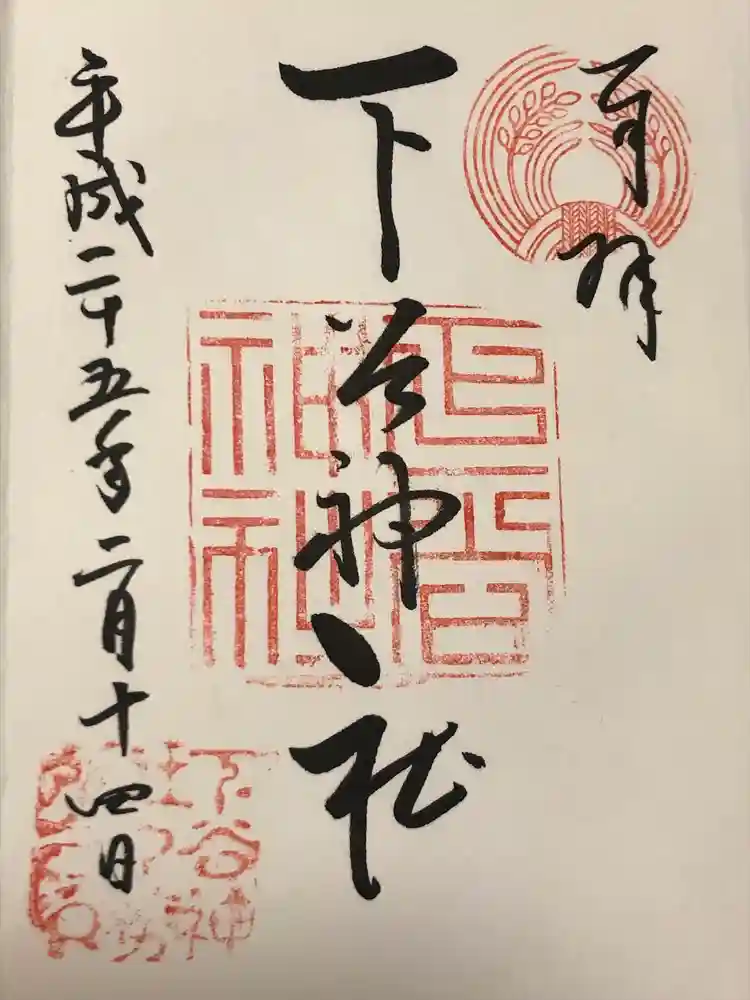 奉拝
下谷神社
下谷神社
平成二十五年二月十四日